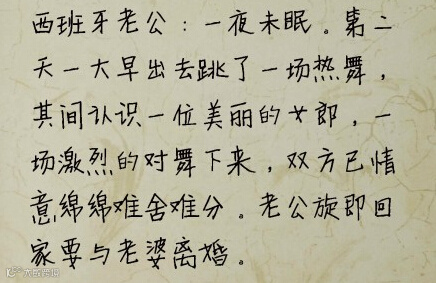 西班牙老公：一夜未眠。第二
天一大早出去跳了一场热舞，
其间认识一位美丽的女郎，一
场激烈的对舞下来，双方已情
意绵绵难舍难分。老公旋即回
家要与老婆离婚。